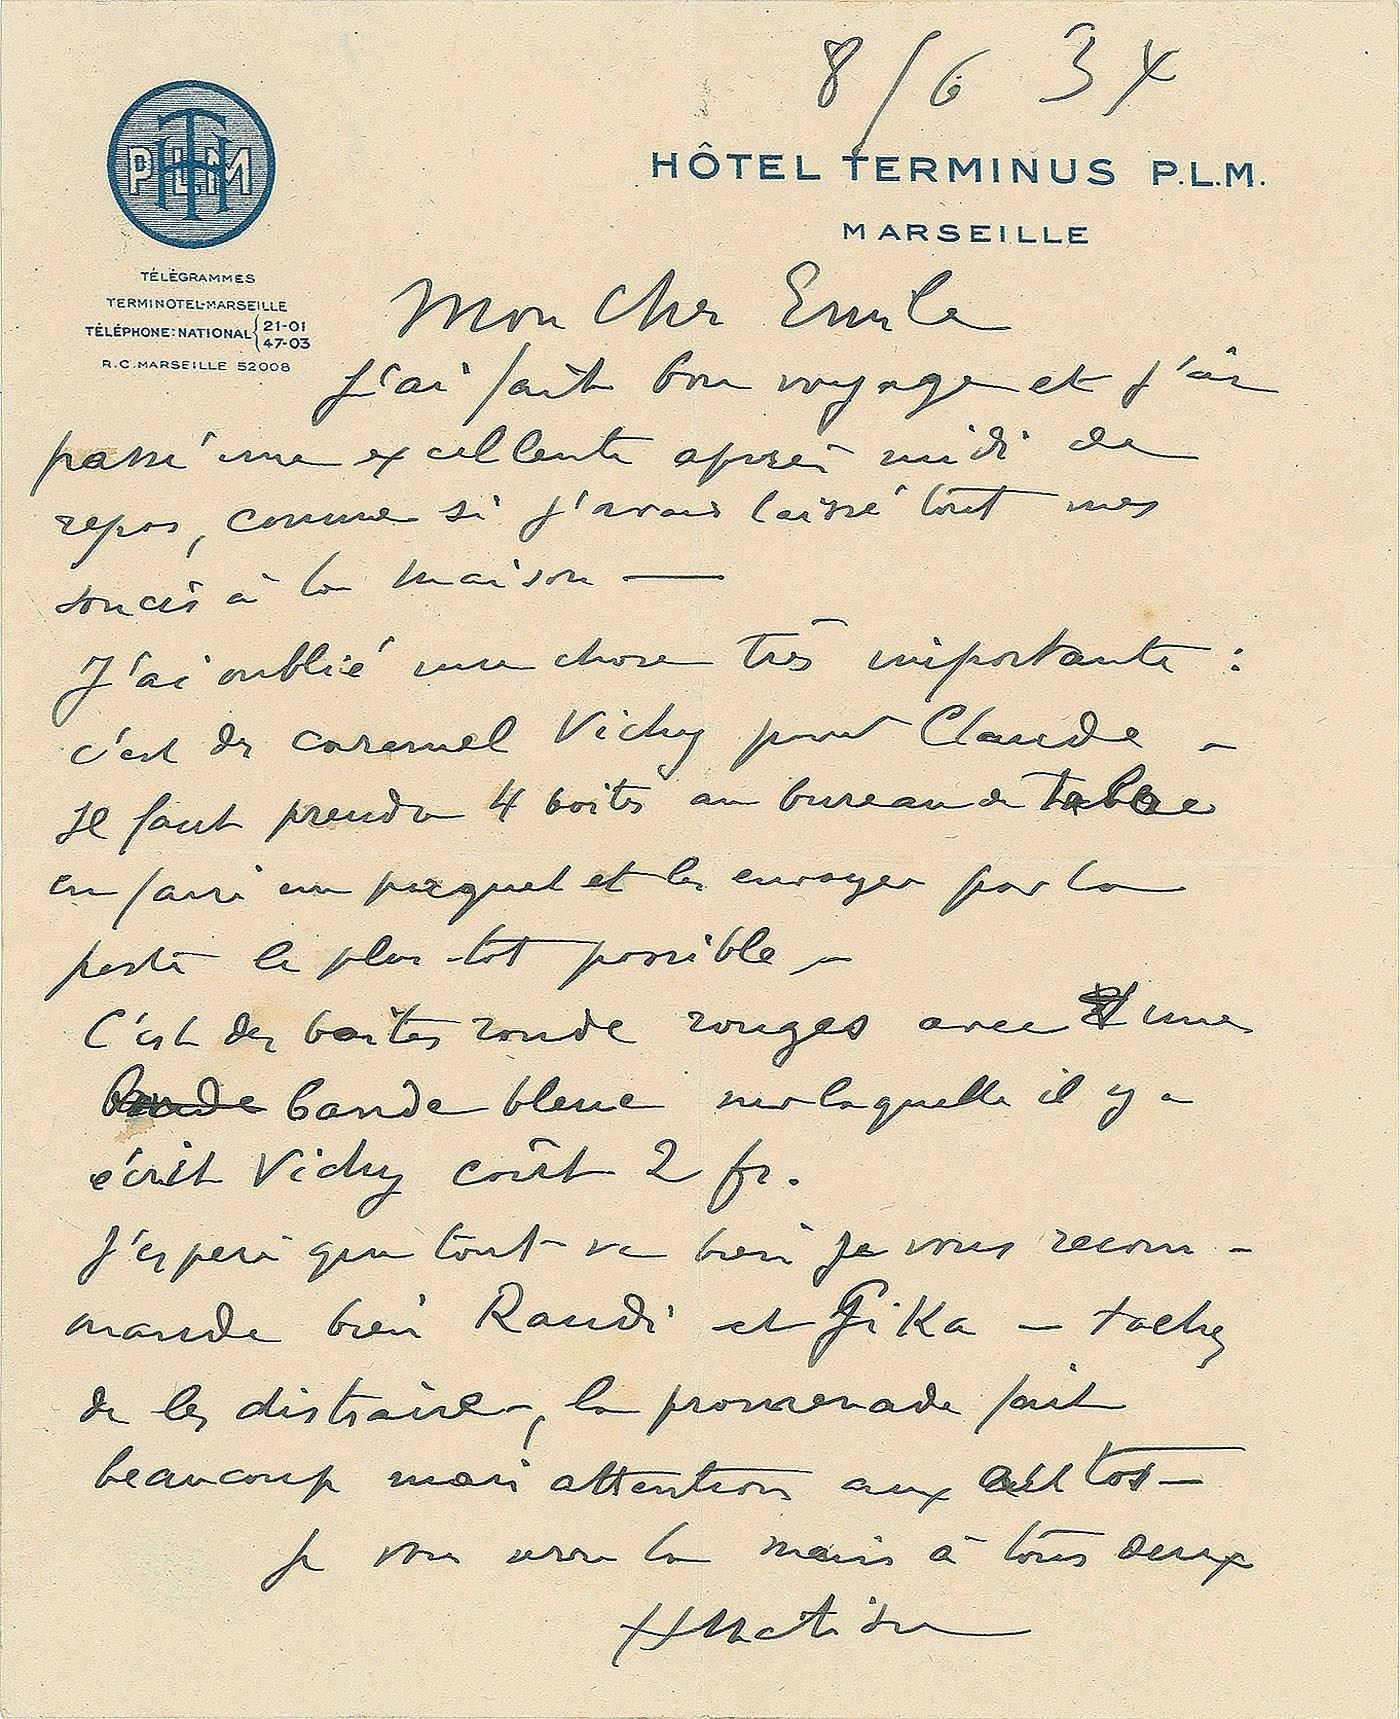 8/6 34
HÔTEL TERMINUS P.L.M.
MARSEILLE
PLM
TH
TÉLÉGRAMMES
TERMINOTEL-MARSEILLE
TÉLÉPHONE: NATIONAL { 21-01
47-03
R.C. MARSEILLE 52008
Mon cher Emile
J'ai fait bon voyage et j'ai
passé une excellente après midi de
repos, comme si j'avais laissé tout mes
soucis à la maison —
J'ai oublié une chose très importante :
c'est du caramel Vichy pour Claude –
Il faut prendre 4 boites au bureau de Tabac
en faire un paquet et les envoyer par la
poste le plus tot possible –
C'est des boites ronde rouges avec une
bande bleue sur laquelle il y a
écrit Vichy coût 2 fr.
J'espère que tout va bien je vous recom-
mande bien Raudi et Gika — tachez
de les distraire, la promenade fait
beaucoup mais attention aux autos —
Je vous serre la main à tous deux
H Matisse